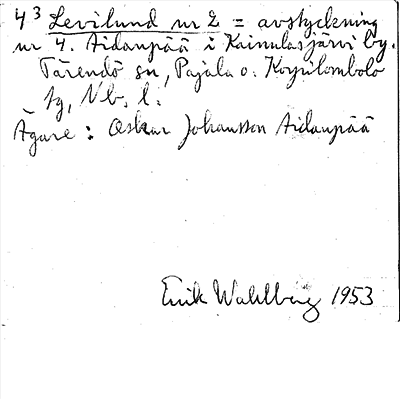 4³ Levilund nr 2 = avstyckning
nr 4. Aidanpää i Kainulasjärvi by.
Tärendö sn, Pajala o. Korpilombolo
tg, Nb. l.
Ägare: Oskar Johansson Aidanpää
Erik Wahlberg 1953